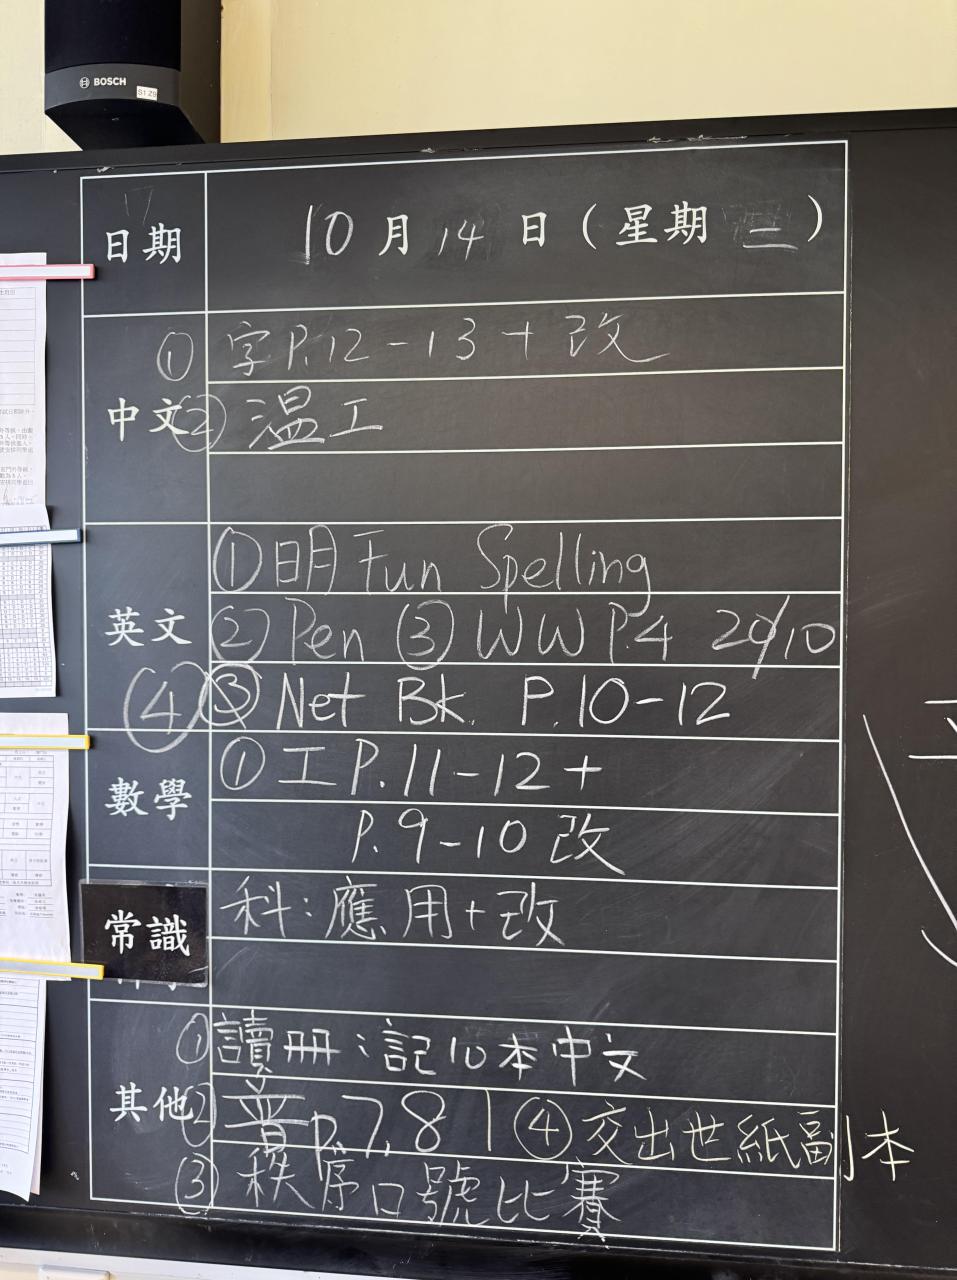 BOSCH
S1 Z9
日期 10月14日(星期二)
中文
① 字P.12-13+改
② 温工
英文
① 明 Fun Spelling
② Pen ③ WW P.4 20/10
④ Net Bk. P.10-12
數學
① 工P.11-12+
P.9-10改
常識
科:應用+改
其他
① 讀冊:記10本中文
② 音p.7,8 | ④ 交出世紙副本
③ 秩序口號比賽